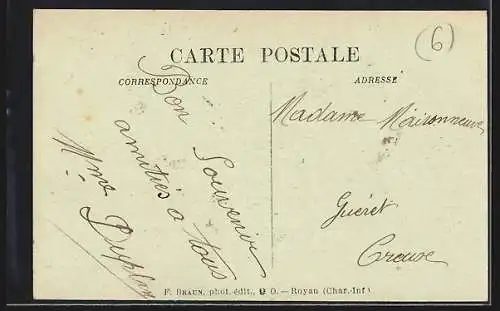 (6)
CARTE POSTALE
CORRESPONDANCE
ADRESSE
Bon Souvenir
amitiés à tous
Mme Duplay
Madame Maisonneuve
Guéret
Creuse
F. BRAUN, phot.-édit., O. — Royan (Char.-Inf)